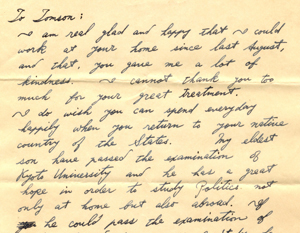 To Tomson:
I am real glad and happy that I could
work at your home since last August,
and that, you gave me a lot of
kindness. I cannot thank you too
much for your great treatment.
I do wish you can spend everyday
happily when you return to your native
country of the States. My eldest
son have passed the examination of
Kyoto University and he has a great
hope in order to study Politics not
only at home but also abroad. If
he could pass the examination of